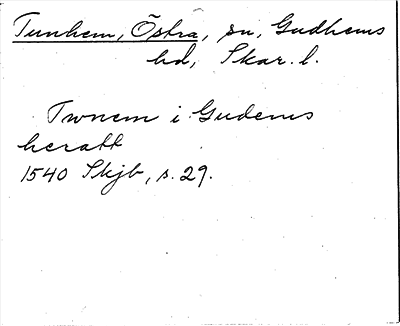 Tunhem, Östra, sn, Gudhems
hd, Skar. l.
Twnem i Gudems
heratt
1540 Skjb, s. 29.